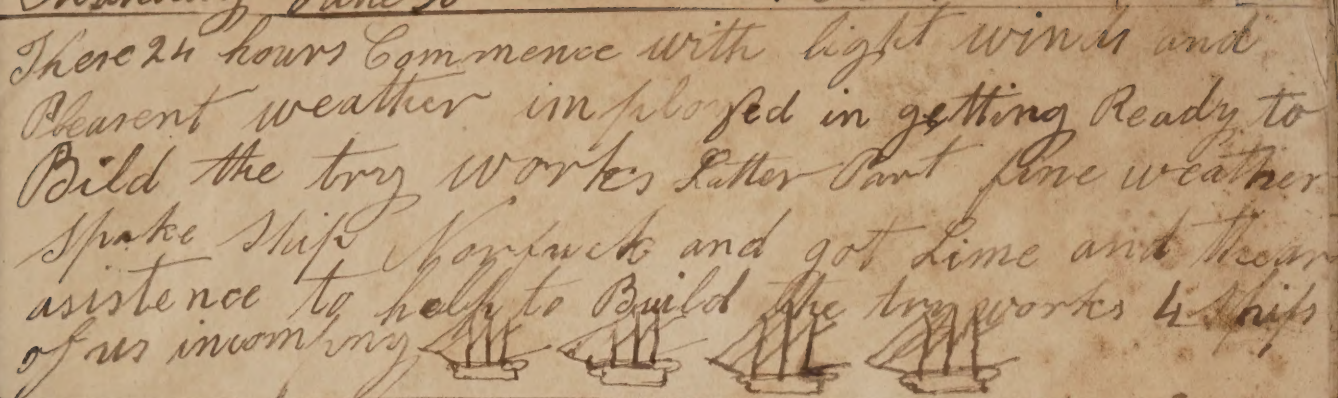 These 24 hours Commence with light winds and
Pleasent weather imployed in getting Ready to
Bild the try works Latter Part fine weather
Spake Ship Norfuck and got Lime and thear
asistence to help to Build the try works 4 Ships
of us incompny